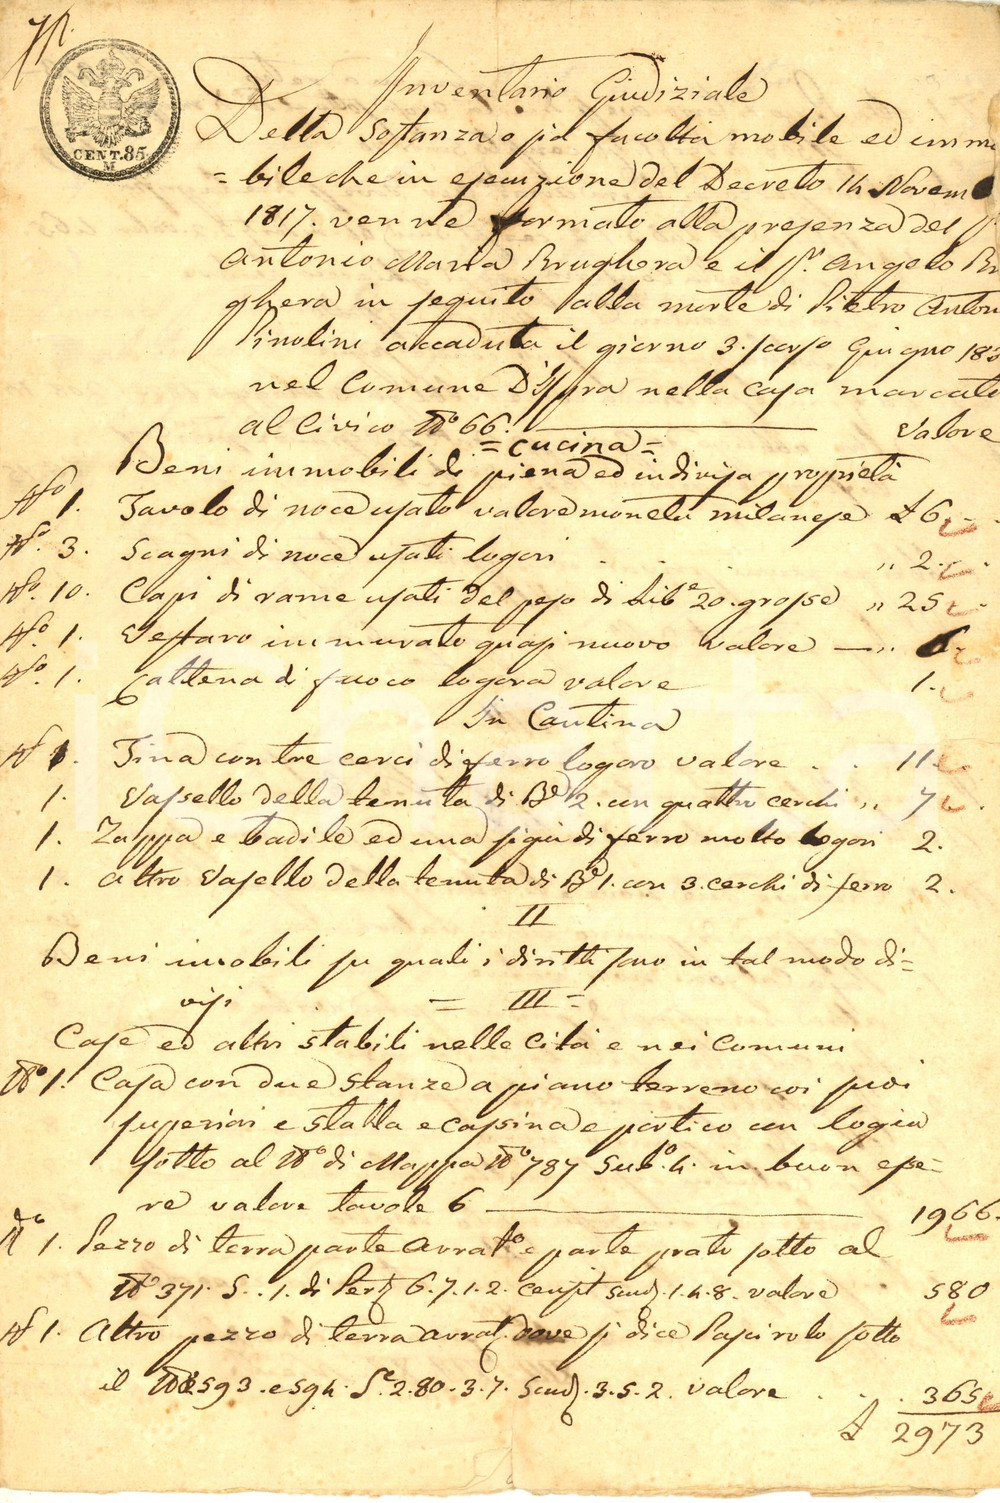 CENT. 85
M
Inventario Giudiziale
Della Sostanza o sia facoltà mobile ed immo
=bile che in esecuzione del Decreto 14 Novem
1817. venne formato alla presenza del
Antonio Maria Brughera e il Sr. Angelo Br
ghera in seguito alla morte di Pietro Anton
Pinolini accaduta il giorno 3. scorso Giugno 183
nel Comune D'Ispra nella casa marcata
al Civico No 66. Valore
=Cucina=
Beni immobili di piena ed indivisa proprietà
No 1. Tavolo di noce usato valore moneta milanese £ 6.
No. 3. Scagni di noce usati logori " 2.
No. 10. Capi di rame usati del peso di Libe 20. grosse " 25
No. 1. Vestaro immurato quasi nuovo valore — " 6.
No. 1. Cattena di fuoco logora valore 1.
In Cantina
No 1. Tina con tre cerci di ferro logoro valore . . 11.
1. Vassello della tenuta di Be 2. con quattro cerchi " 7.
1. Zappa e badile ed una sigù di ferro molto logori 2.
1. altro Vasello della tenuta di Be 1. con 3. cerchi di ferro 2.
II
Beni imobili su quali i diritti sono in tal modo di=
visi = III =
Case ed altri stabili nelle Cità e nei Comuni
No 1. Casa con due stanze a piano terreno coi suoi
superiori e stalla e cassina e portico con logia
sotto al No di Mappa No 787 Subo. 4. in buon esse=
re valore tavole 6 1966.
No 1. Pezzo di terra parte arrato e parte prato sotto al
No 371. S. .1. di Pert 6.7.1.2. censit Scud. 1.4.8. valore 580
No 1. Altro pezzo di terra arrat. dove si dice Papirolo sotto
il No 2593. e 594. Se. 2.80.3.7. Scud. 3.5.2. valore . . . 365
£ 2973